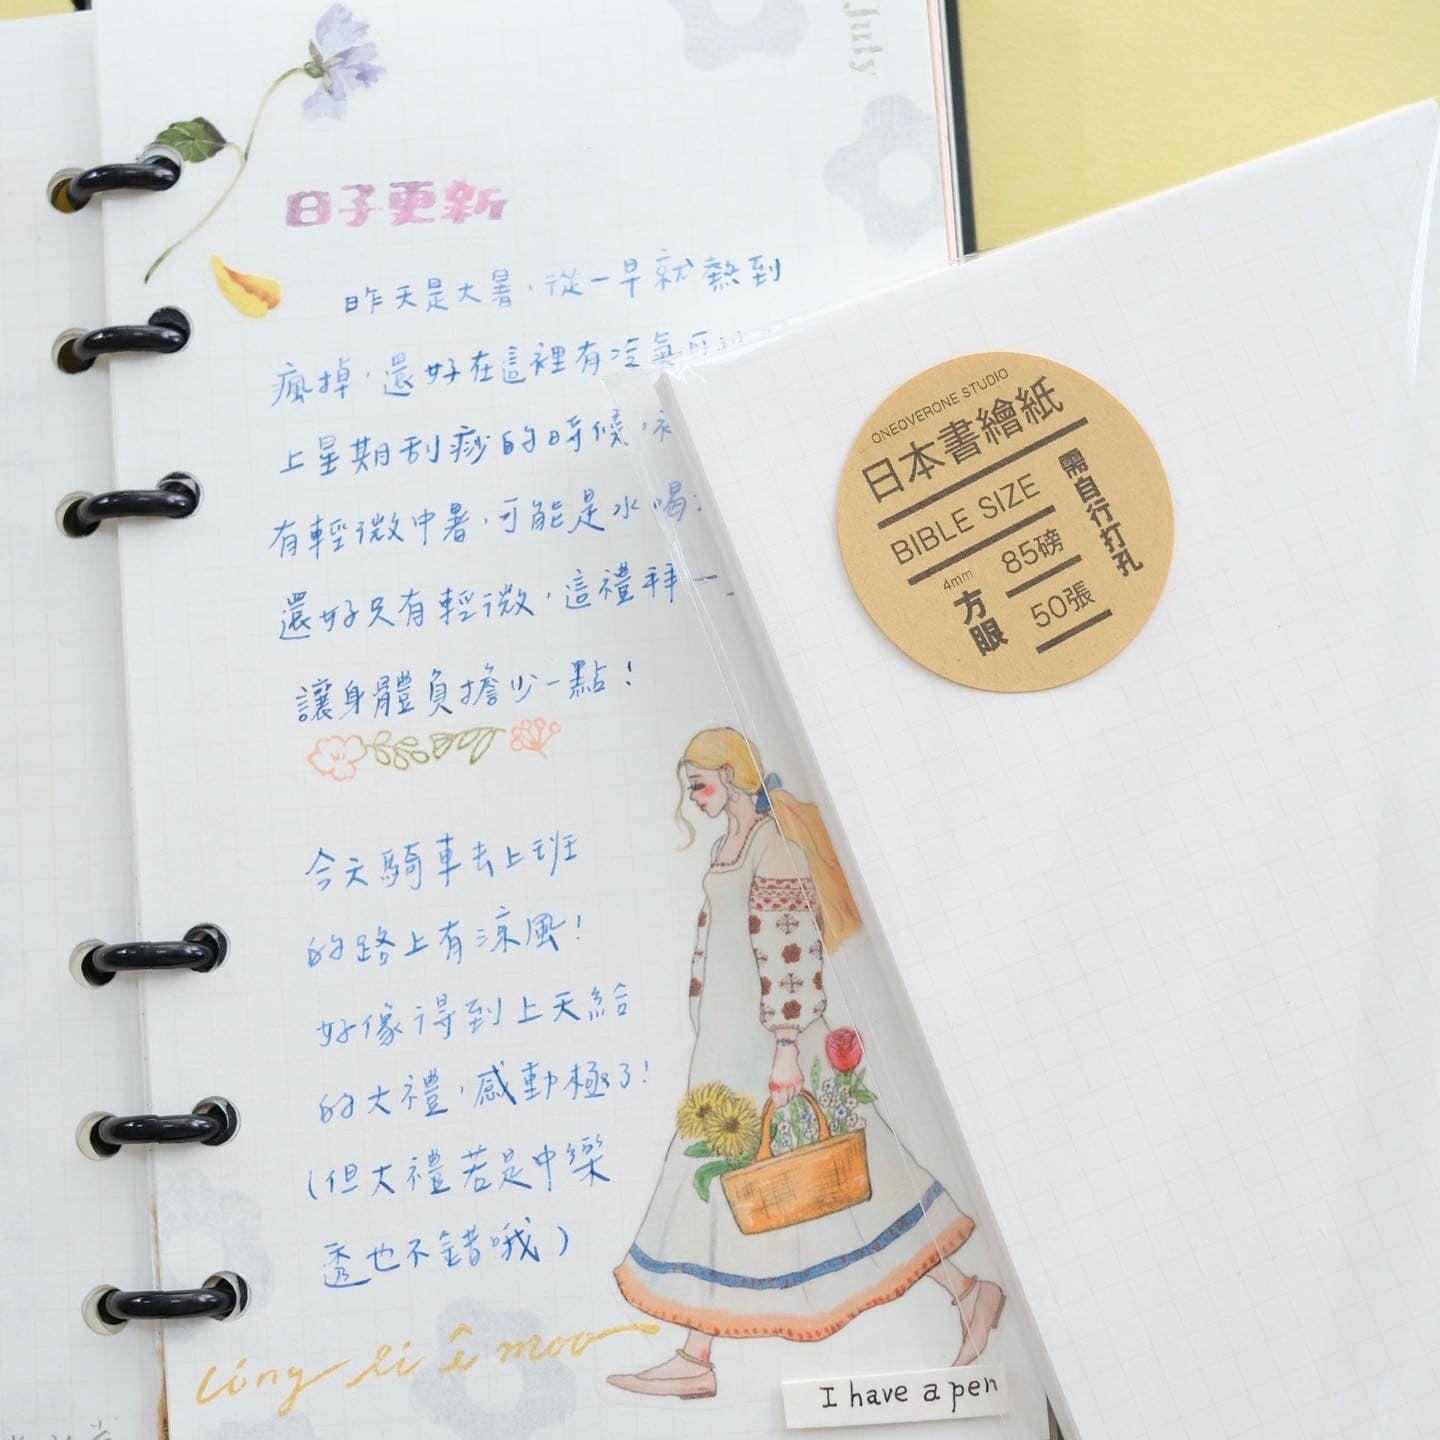 July
日子更新
昨天是大暑，從一早就熱到
瘋掉，還好在這裡有冷氣可以
上星期刮痧的時候，
有輕微中暑，可能是水喝
還好只有輕微，這禮拜一
讓身體負擔少一點！
今天騎車去上班
的路上有涼風！
好像得到上天給
的大禮，感動極了！
（但大禮若是中樂
透也不錯哦）
I have a pen
ONEOVERONE STUDIO
日本書繪紙
BIBLE SIZE
4mm
方眼
85磅
50張
需自行打孔